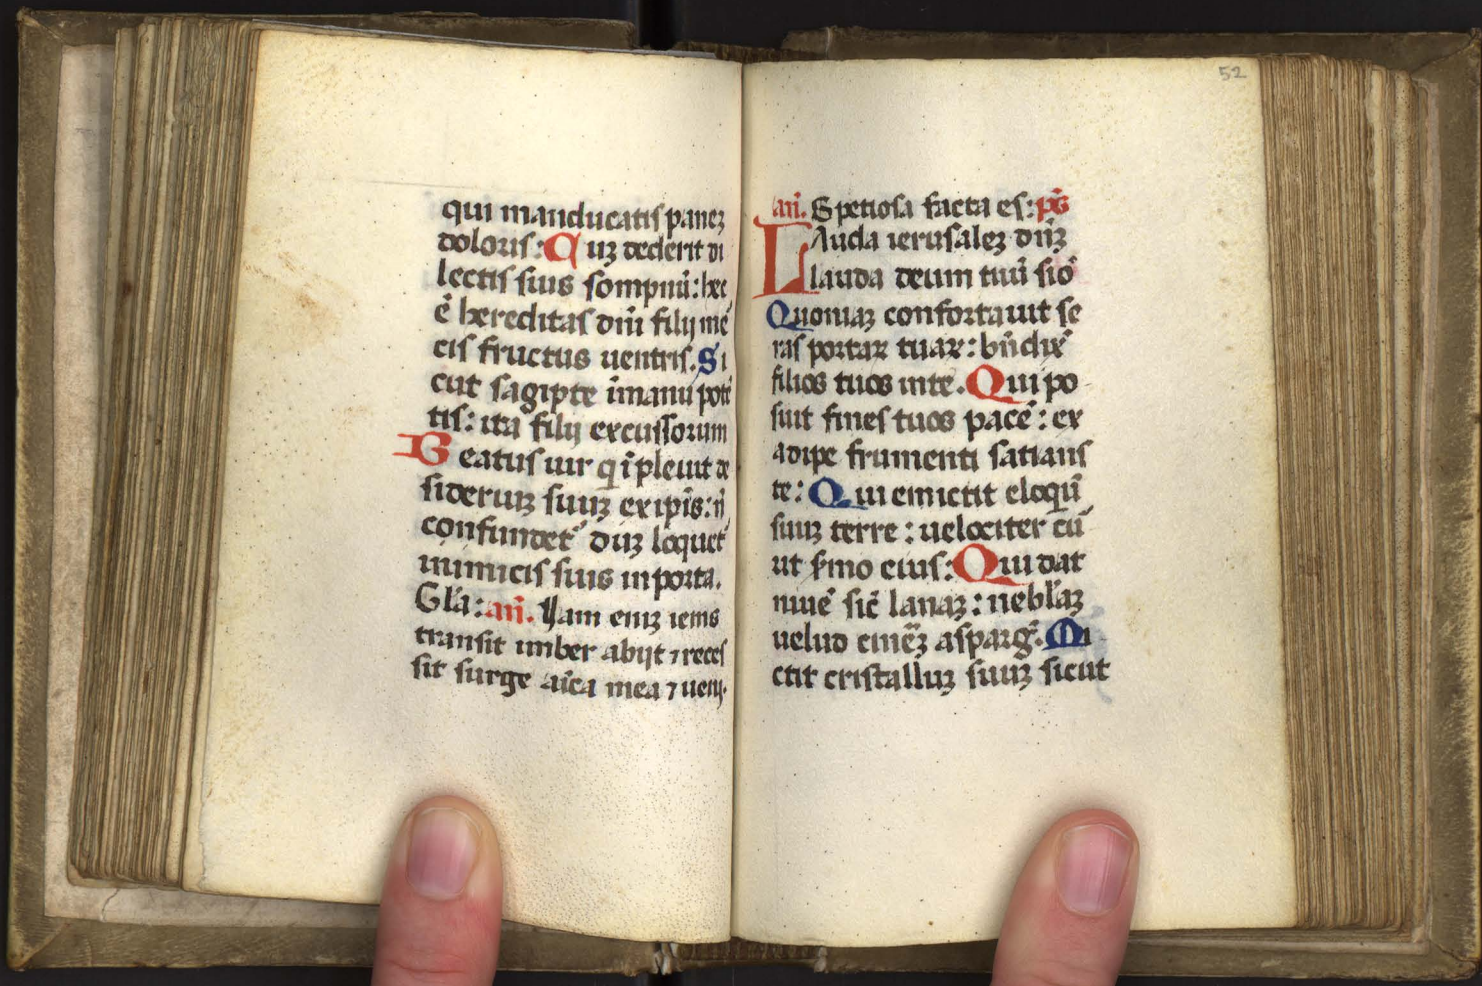 qui manducatis paneʒ
doloris: Cuʒ dederit di
lectis suis sompnũ: hec
ẽ hereditas dñi filij mẽ
cis fructus uentris. Si
cut sagipte ĩmanu potẽ
tis: ita filij excussorum
Beatus uir q ĩpleuit de
sideriuʒ suuʒ ex ip̃is: nõ
confundet᷑ duʒ loquet᷑
inimicis suis in porta.
Gl̃a: añ. Yam eniʒ iems
transit imber abijt ⁊ reces
sit surge aĩca mea ⁊ ueni.
52
añ. Spetiosa facta es: p̃s
LAuda ierusaleʒ dñʒ
lauda deum tuũ siõ
Quoniaʒ confortauit se
ras portaꝝ tuaꝝ: bñdix̃
filios tuos inte. Qui po
suit fines tuos pacẽ: ex
adipe frumenti satians
te: Qui emictit eloquĩ
suuʒ terre: uelociter cũ
ut s̃mo eius: Qui dat
niuẽ sic̃ lanaʒ: nebl̃aʒ
uelud cinẽʒ asparg̃. Mi
ctit cristalluʒ suuʒ sicut